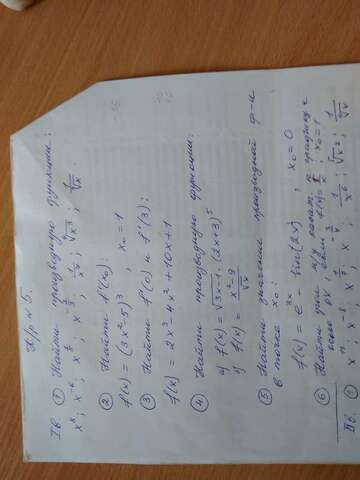 К/р №5.
I в. ① Найти производную функции:
x⁸; x⁻⁶; x^{1/6}; x^{-2/3}; 1/x⁴; √x³; 1/∛x.
② Найти f'(x₀):
f(x) = (3x²-5)³, x₀ = 1
③ Найти f'(0) и f'(3):
f(x) = 2x³-4x²+10x+1
④ Найти производную функции:
а) f(x) = √3x-1 · (2x+3)⁵
f(x) = x²-9/√x
⑤ Найти значение производной ф-и
в точке x₀:
f(x) = e³ˣ - sin(2x), x₀ = 0
⑥ Найти угол м/у касат. к графику с
осью
II в. ①